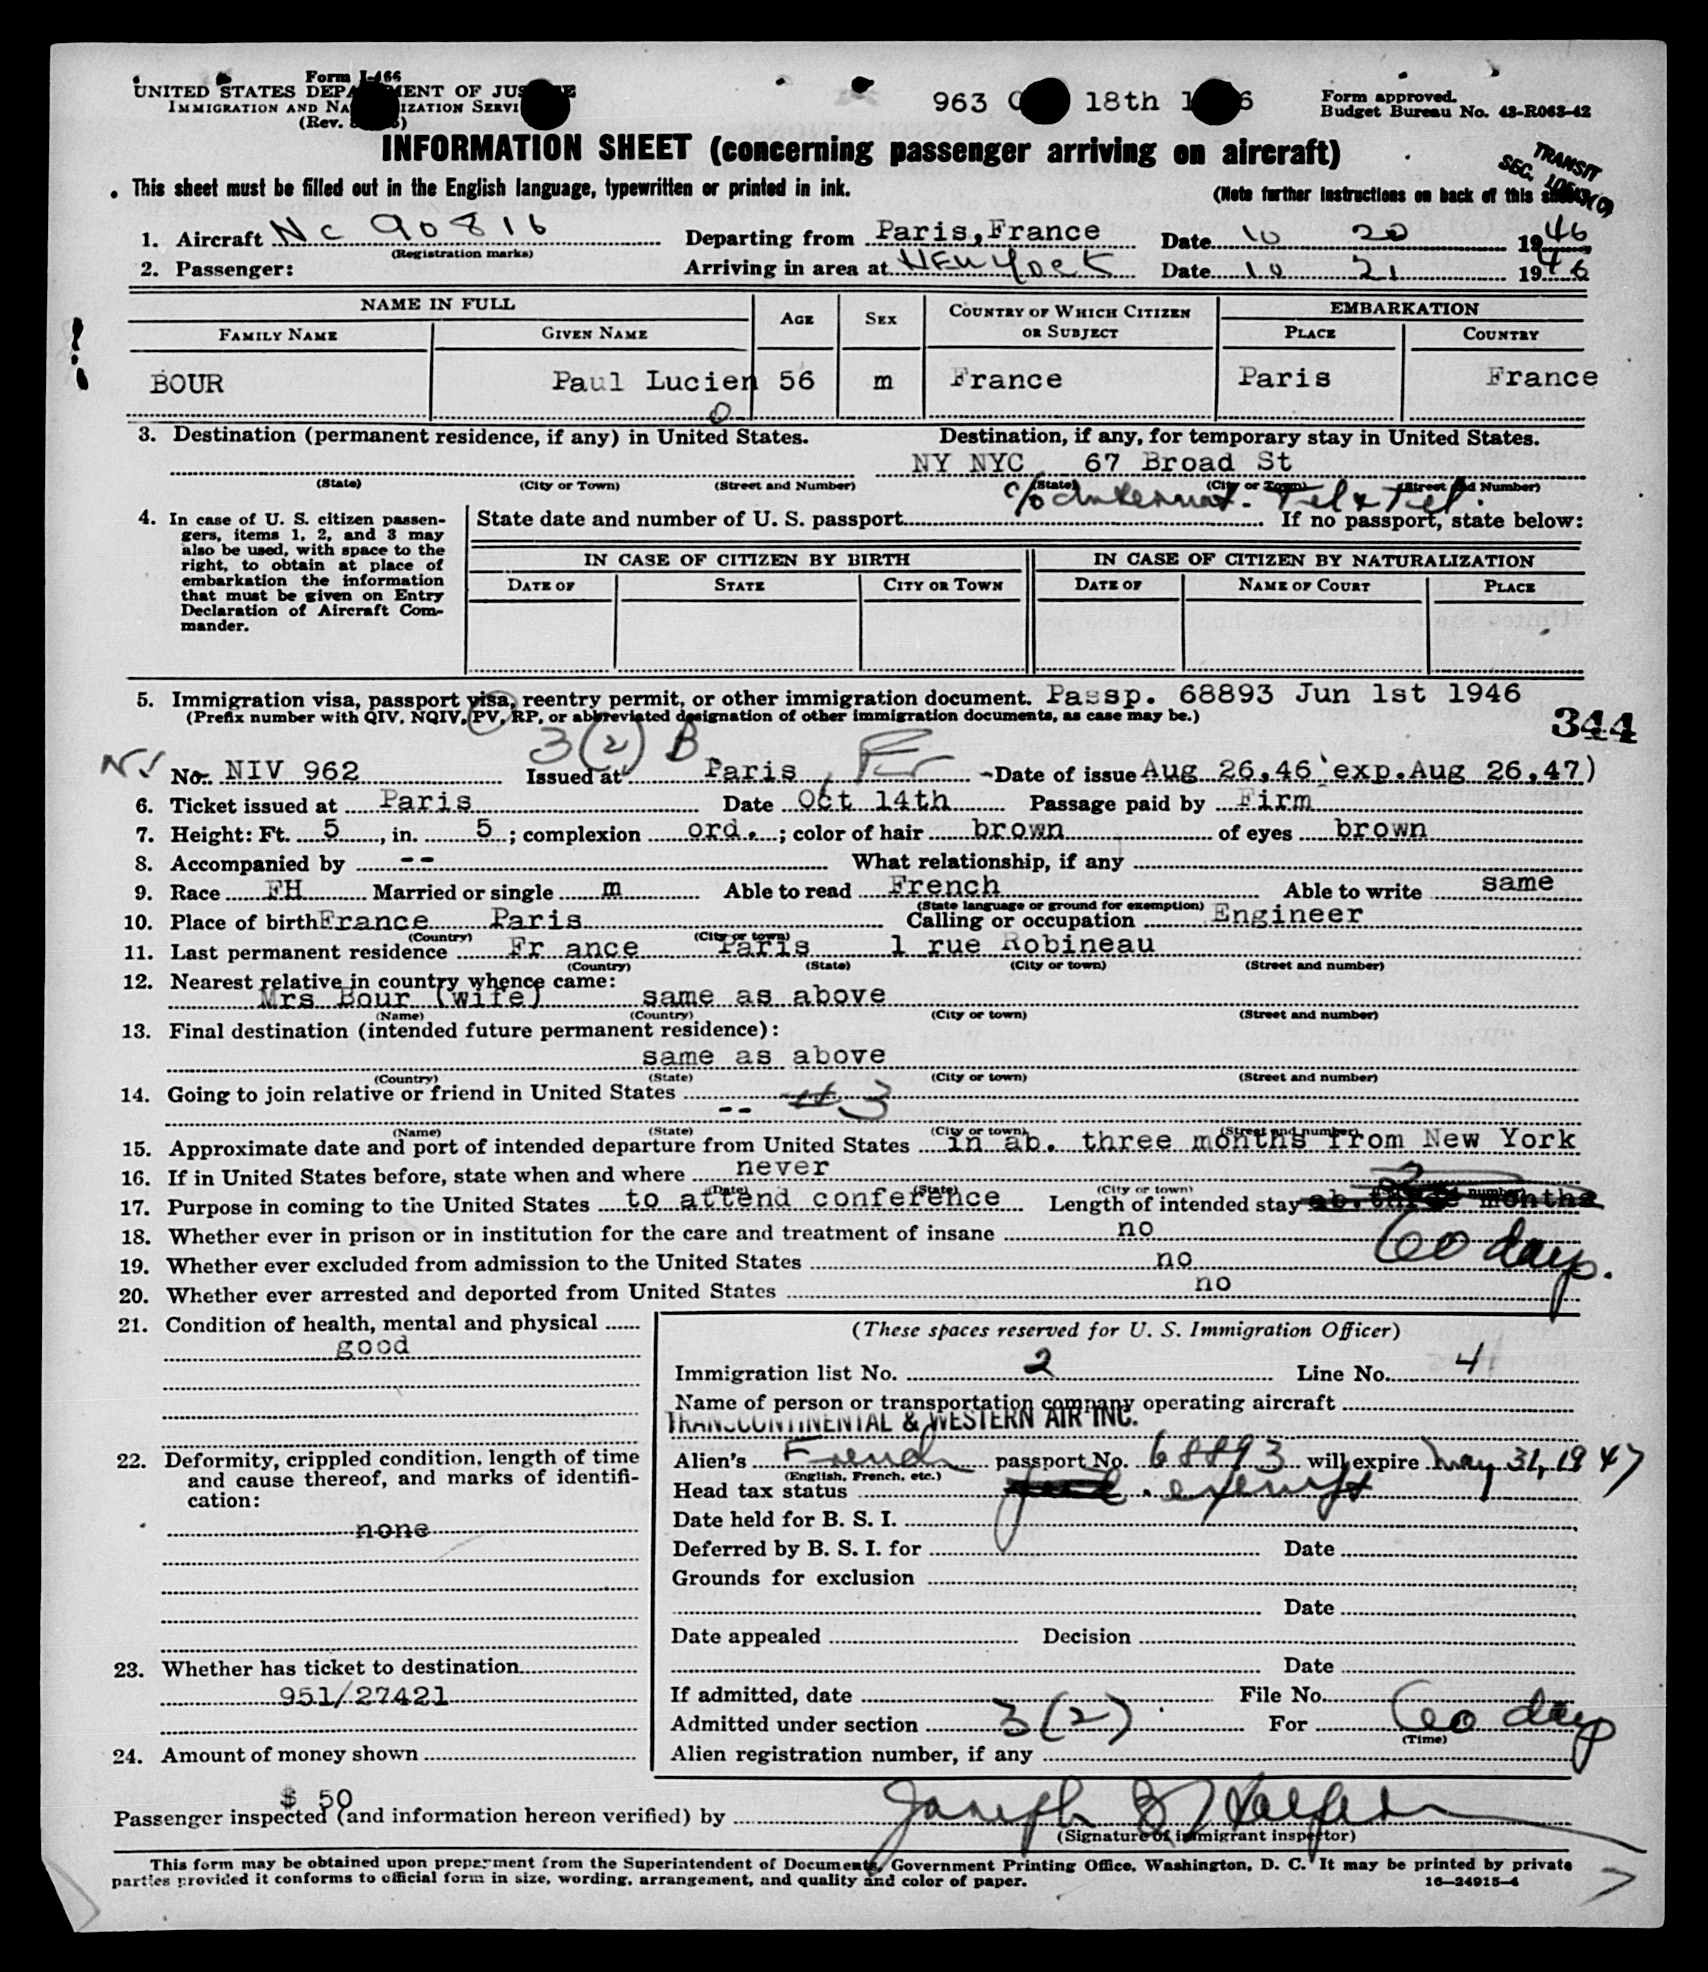 Form I-466
UNITED STATES DEPARTMENT OF JUSTICE
IMMIGRATION AND NATURALIZATION SERVICE
(Rev.
963 18th
Form approved.
Budget Bureau No. 43-R063-42
INFORMATION SHEET (concerning passenger arriving on aircraft)
TRANSIT
SEC.
This sheet must be filled out in the English language, typewritten or printed in ink.
(Note further instructions on back of this sheet)
1. Aircraft NC 90816 Departing from Paris, France Date 10 20 1946
(Registration marks)
2. Passenger: Arriving in area at New York Date 10 21 1946
NAME IN FULL AGE SEX COUNTRY OF WHICH CITIZEN OR SUBJECT EMBARKATION
FAMILY NAME GIVEN NAME PLACE COUNTRY
BOUR Paul Lucien 56 m France Paris France
3. Destination (permanent residence, if any) in United States. Destination, if any, for temporary stay in United States.
NY NYC 67 Broad St
(State) (City or Town) (Street and Number) (State) (City or Town) (Street and Number)
c/o Internat. Tel & Tel.
4. In case of U. S. citizen passengers, items 1, 2, and 3 may also be used, with space to the right, to obtain at place of embarkation the information that must be given on Entry Declaration of Aircraft Commander.
State date and number of U. S. passport If no passport, state below:
IN CASE OF CITIZEN BY BIRTH IN CASE OF CITIZEN BY NATURALIZATION
DATE OF STATE CITY OR TOWN DATE OF NAME OF COURT PLACE
5. Immigration visa, passport visa, reentry permit, or other immigration document. Passp. 68893 Jun 1st 1946
(Prefix number with QIV, NQIV, PV, RP, or abbreviated designation of other immigration documents, as case may be.)
344
3(2) B
No. NIV 962 Issued at Paris Date of issue Aug 26,46 exp.Aug 26,47)
6. Ticket issued at Paris Date Oct 14th Passage paid by Firm
7. Height: Ft. 5, in. 5; complexion ord.; color of hair brown of eyes brown
8. Accompanied by -- What relationship, if any
9. Race FH Married or single m Able to read French Able to write same
(State language or ground for exemption)
10. Place of birth France Paris Calling or occupation Engineer
(Country) (City or town)
11. Last permanent residence Fr ance Paris 1 rue Robineau
(Country) (State) (City or town) (Street and number)
12. Nearest relative in country whence came:
Mrs Bour (wife) same as above
(Name) (Country) (City or town) (Street and number)
13. Final destination (intended future permanent residence):
same as above
(Country) (State) (City or town) (Street and number)
14. Going to join relative or friend in United States
-- 3
(Name) (State) (City or town) (Street and number)
15. Approximate date and port of intended departure from United States in ab. three months from New York
16. If in United States before, state when and where never
(Date) (State) (City or town)
17. Purpose in coming to the United States to attend conference Length of intended stay ab. three months
60 days.
18. Whether ever in prison or in institution for the care and treatment of insane no
19. Whether ever excluded from admission to the United States no
20. Whether ever arrested and deported from United States no
21. Condition of health, mental and physical
good
22. Deformity, crippled condition, length of time and cause thereof, and marks of identification:
none
23. Whether has ticket to destination
951/27421
24. Amount of money shown
$ 50
(These spaces reserved for U. S. Immigration Officer)
Immigration list No. 2 Line No. 4
Name of person or transportation company operating aircraft
TRANSCONTINENTAL & WESTERN AIR INC.
Alien's French passport No. 68893 will expire May 31, 1947
(English, French, etc.)
Head tax status exempt
Date held for B. S. I.
Deferred by B. S. I. for Date
Grounds for exclusion
Date
Date appealed Decision
Date
If admitted, date File No.
Admitted under section 3(2) For 60 days
(Time)
Alien registration number, if any
Passenger inspected (and information hereon verified) by Joseph
(Signature of immigrant inspector)
This form may be obtained upon prepayment from the Superintendent of Documents, Government Printing Office, Washington, D. C. It may be printed by private
parties provided it conforms to official form in size, wording, arrangement, and quality and color of paper.
16—24915-4